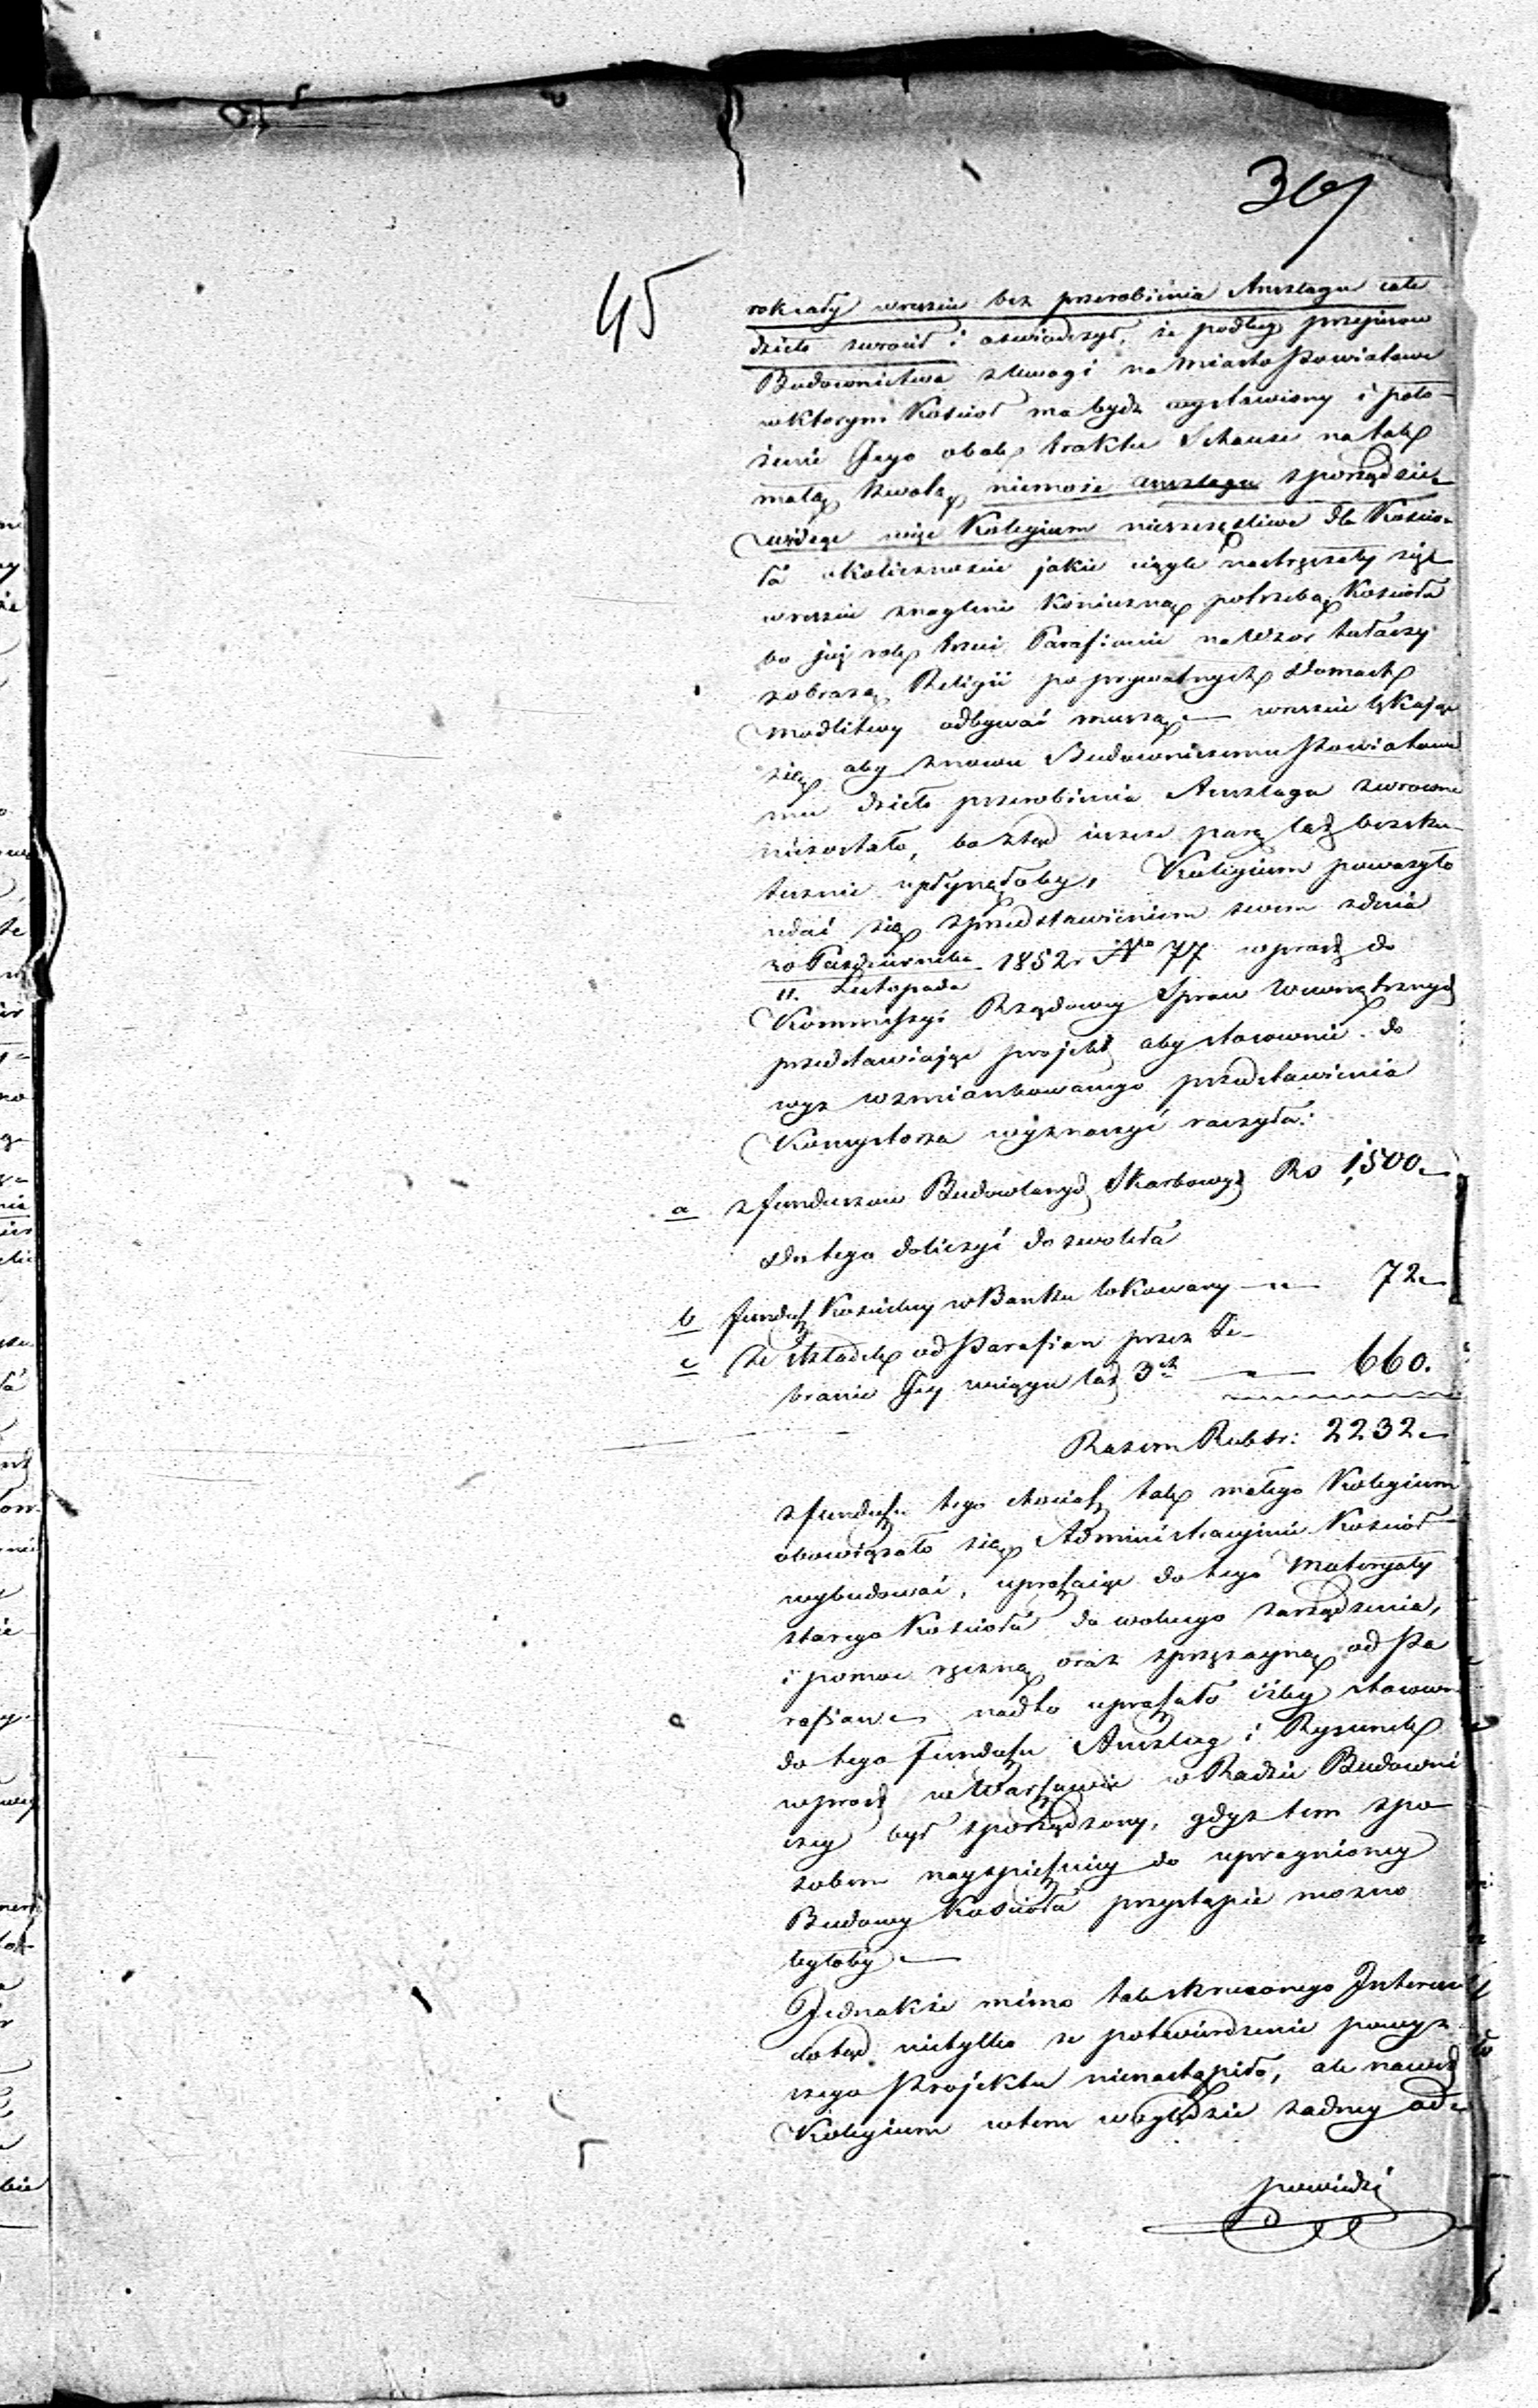 367
45
rok cały wreszcie bez przerobienia Anszlagu całe
dzieło zwrócił i oświadczył, że podług przepisow
Budownictwa z Uwagi na Miasto Powiatowe
w ktorym Kościoł ma bydz wystawiony i poło-
żenie Jego obok traktu Schause na tak
małą kwotę niemoże anszlagu sporządzic
widząc więc Kolegium nieszczęśliwe dla Kościo-
ła okoliczności jakie ciągle nastręczały się
wreszcie znagleni konieczną potrzebą Kościoła
bo już rok trzeci Parafianie na Wzor tułaczy
z obrazą Religii po prywatnych Domach
modlitwy odbywać muszą – wreszcie lękając
się aby znowu Budowniczemu Powiatowe
mu dzieło przerobienia Anszlagu zwrocone
niezostało, bo ztąd jeszcze parę lat bezsku-
tecznie upłynęłoby, Kolegium poważyło
udać się z przedstawieniem swem z dnia
30 Października 1852 r No 77 wprost do
11. Listopada
Kommissyi Rządowey Spraw Wewnętrznych
przedstawiając projekt aby stosownie do
wyż wzmiankowanego przedstawienia
Konsystorza wyznaczyć raczyła:
a z funduszow Budowlanych Skarbowych Rs 1,500 –
do tego doliczyć dozwoliła
b fundusz Kościelny w Banku lokowany – „ – 72 –
c Ze składek od Parafian przez Ze-
branie Jey wciągu lat 3ch – „ – 660.
Razem Rubsr: 2232 –
z funduszu tego chociaż tak małego Kolegium
obowiązało się Administracyjnie Kościoł
wybudować, upraszając do tego Materyały
starego Kościoła do wolnego zarządzenia,
i pomoc ręczną oraz sprzężayną od Pa
rafian – nadto upraszało iżby stosown
do tego funduszu Anszlag i Rysunek
wprost w Warszawie w Radzie Budowni
czey był sporządzony, gdyż tem spo
sobem nayspieszniey do upragnioney
Budowy Kościoła przystąpić mozno
byłoby –
Jednakże mimo tak skruconego Interessu
dotąd nietylko ze potwierdzenie powyz
szego Projektu nienastąpiło, ale nawet
Kolegium w tem względzie zadney od-
powiedzi